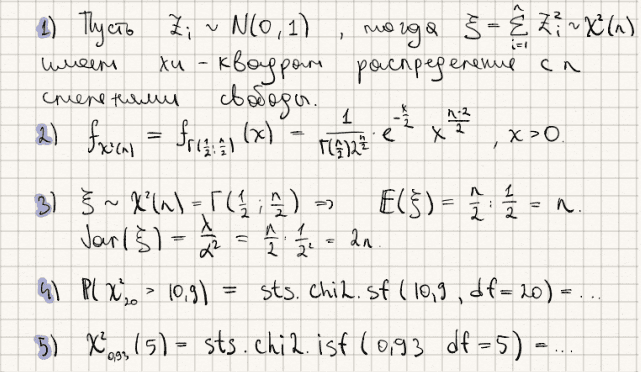 1) Пусть Z_i ~ N(0,1), тогда ξ = Σ_{i=1}^{n} Z_i^2 ~ χ^2(n)
имеет хи-квадрат распределение с n
степенями свободы.
2) f_{χ^2(n)} = f_{Γ(1/2; n/2)}(x) = 1/(Γ(n/2)2^{n/2}) · e^{-x/2} x^{(n-2)/2}, x>0.
3) ξ ~ χ^2(n) = Γ(1/2; n/2) => E(ξ) = n/2 : 1/2 = n.
Var(ξ) = λ/α^2 = n/2 : 1/2^2 = 2n.
4) P(χ^2_{20} > 10,9) = sts.chi2.sf(10,9, df=20) = ...
5) χ^2_{0,93}(5) = sts.chi2.isf(0,93 df=5) = ...